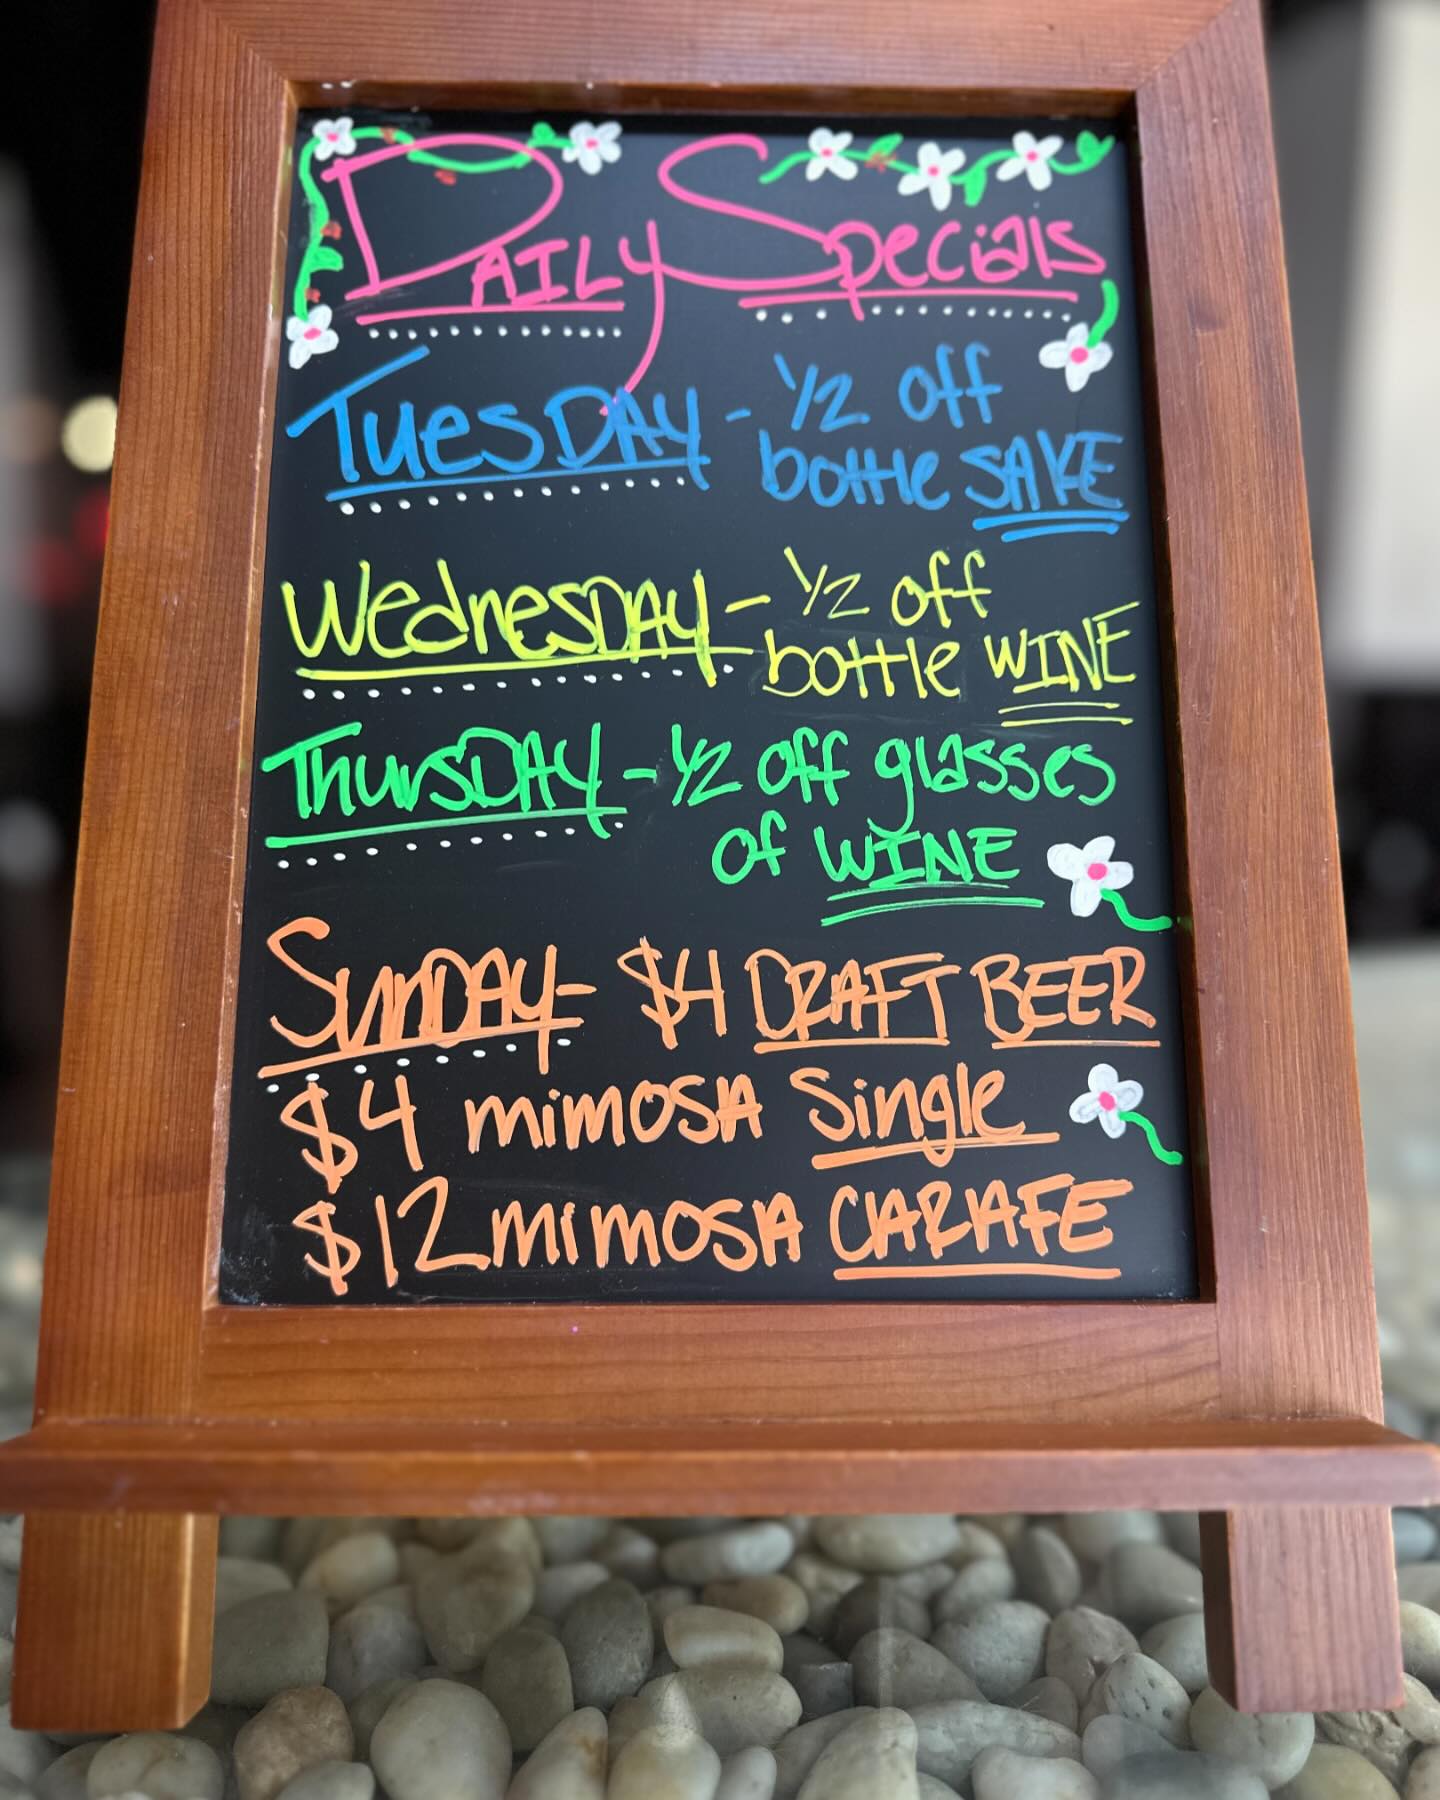 DAILY Specials
TuesDAY - 1/2 off
bottle SAKE
WednesDAY - 1/2 off
bottle WINE
ThursDAY - 1/2 off glasses
of WINE
SunDAY - $4 DRAFT BEER
$4 mimosA Single
$12 mimosA CARAFE